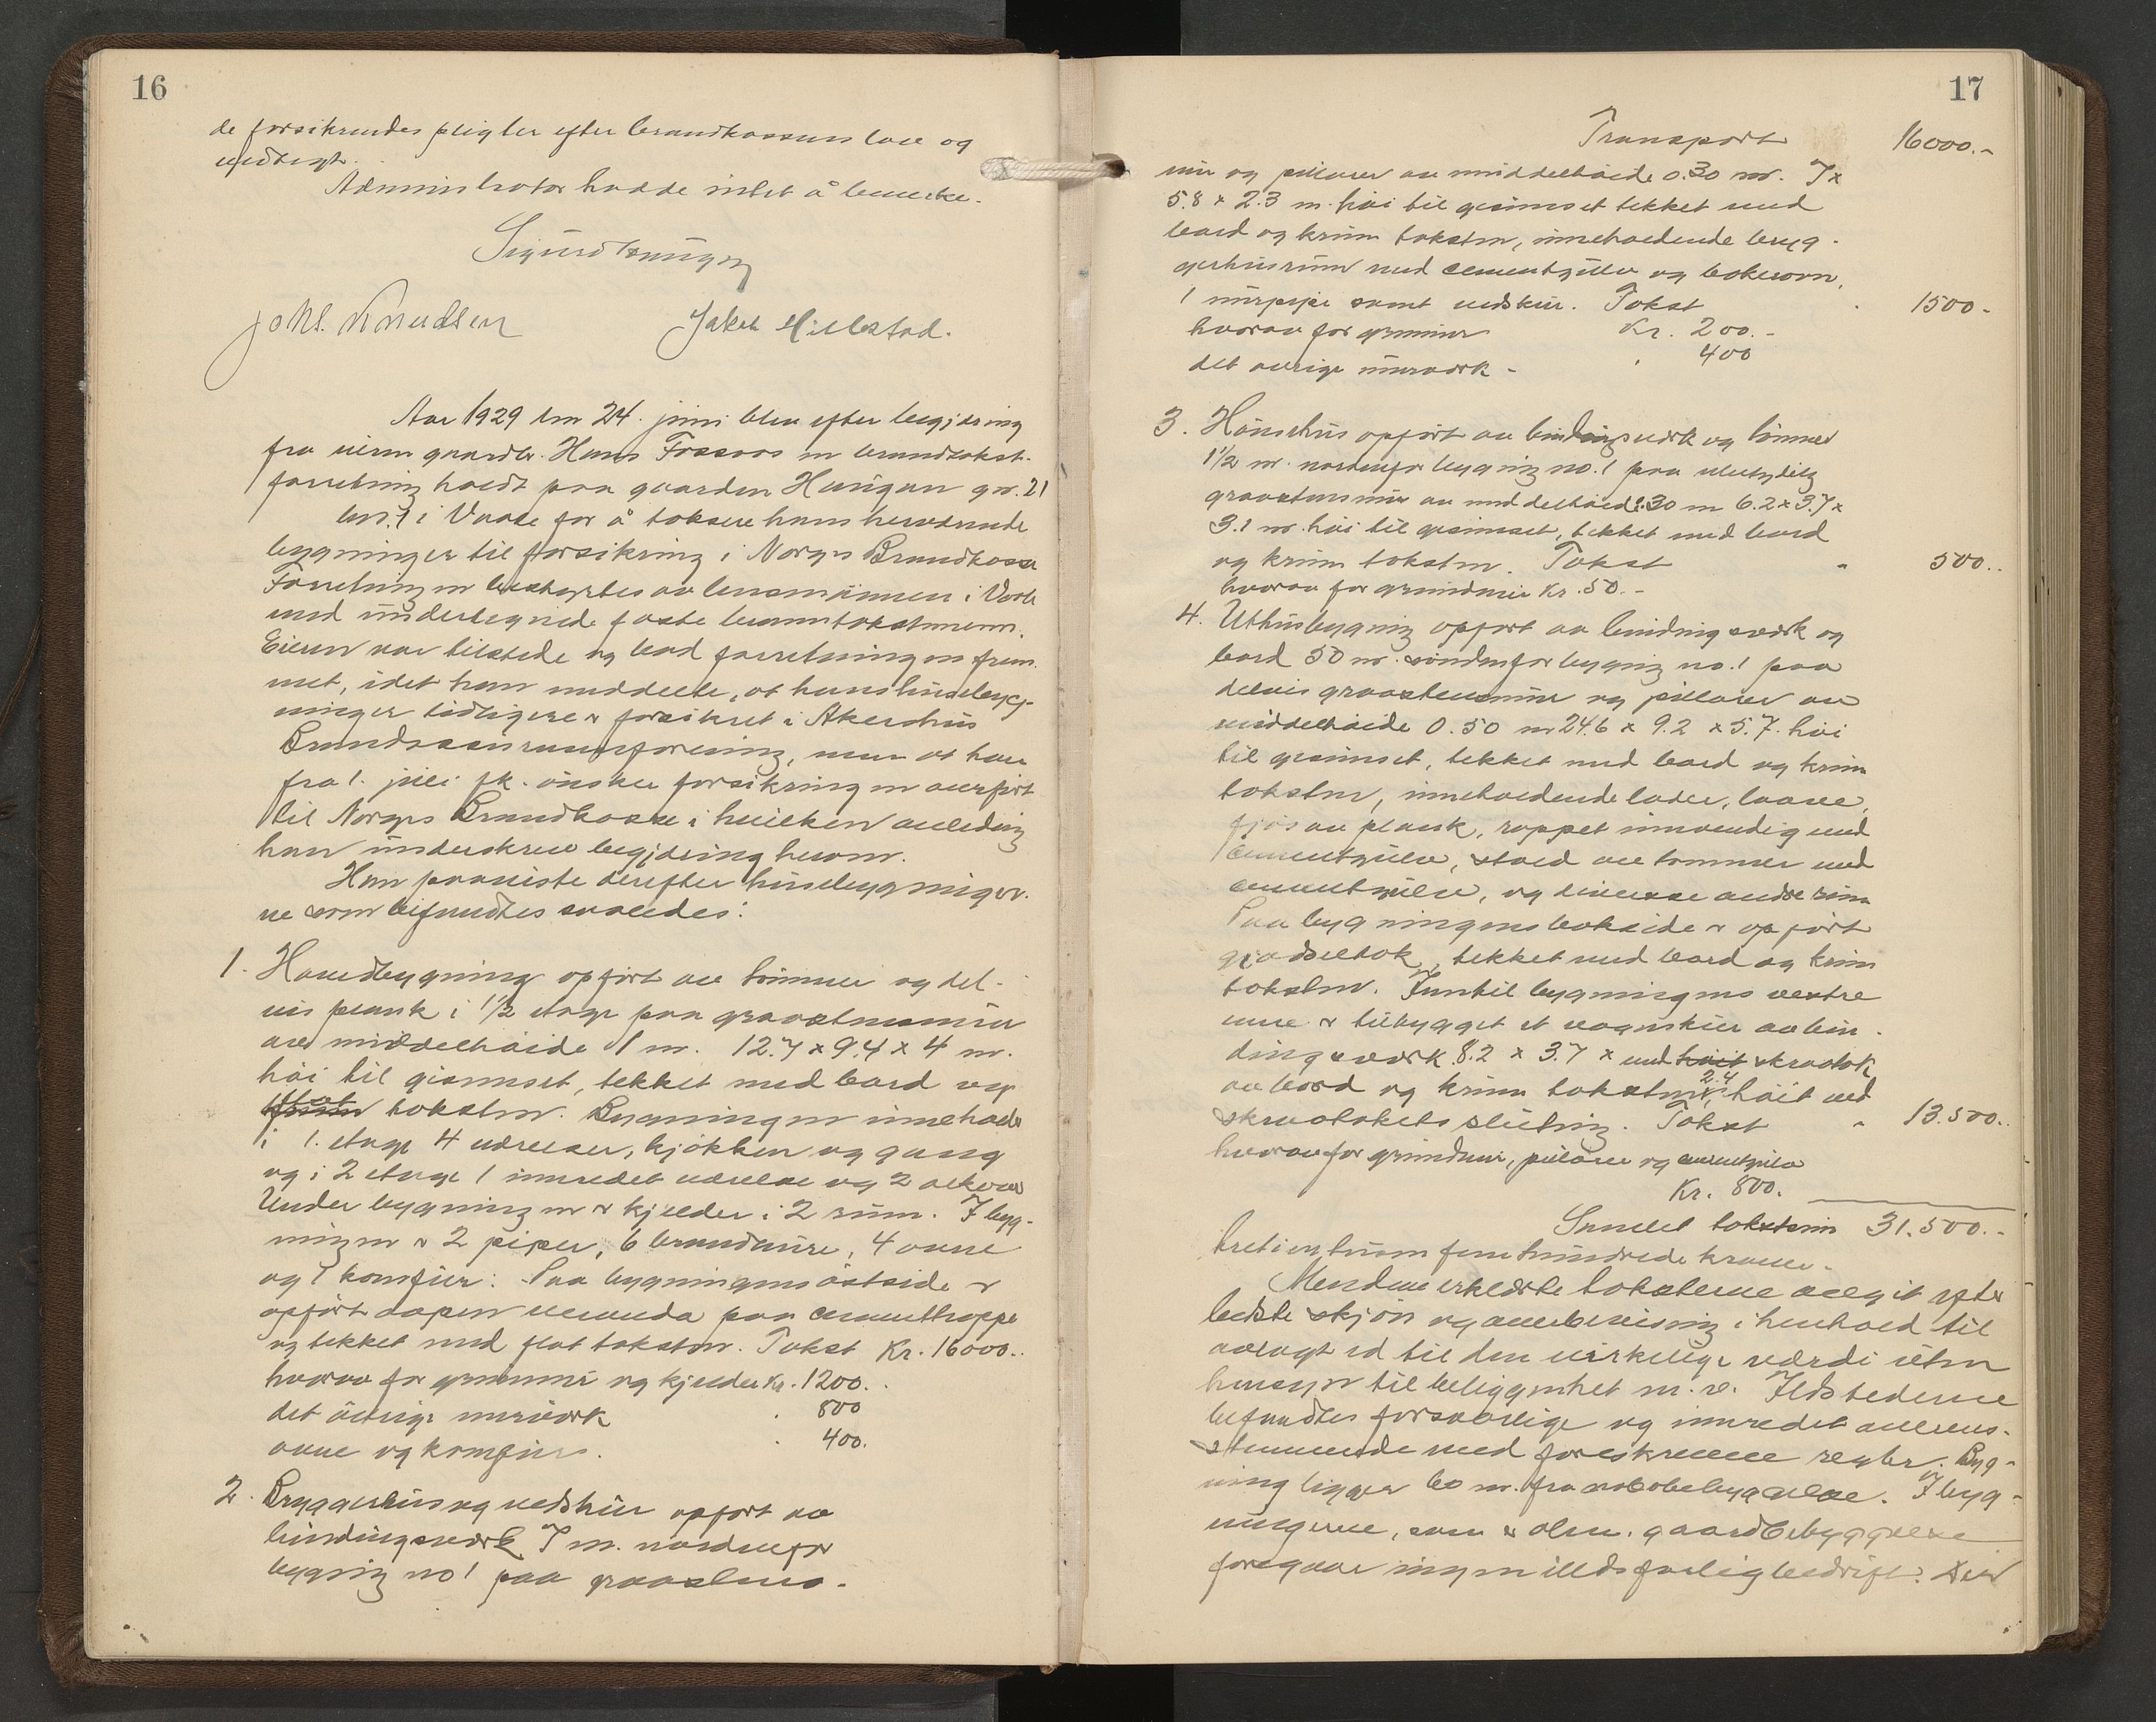 16
de forsikrendes pligter efter brandkassens lov og
vedtægt.
Administrator hadde intet å bemerke.
Sigurd
Johs. Knudsen Jakob Hillestad.
Aar 1929 den 24. juni blev efter begjæring
fra eieren gaardbr. Hans Fossaas en brandtakst-
forretning holdt paa gaarden Haugan gnr. 21
bnr. 1 i Vaale for å taksere hans herværende
bygninger til forsikring i Norges Brandkasse
Forretningen bestyrtes av lensmannen i Vaale
med undertegnede faste branntakstmenn.
Eieren var tilstede og bad forretningen frem-
met, idet han meddelte, at hans husbyg-
ninger tidligere er forsikret i Akershus
Brandassuranceforening, men at han
fra 1. juli fk. ønsker forsikringen overført
til Norges Brandkasse i hvilken anledning
han underskrev begjæring herom.
Han paaviste derefter husbygninger-
ne som befandtes saaledes:
1. Hovedbygning opført av tømmer og del-
vis plank i 1½ etage paa graastensmur
av middelhøide 1 m. 12.7 x 9.4 x 4 m.
høi til gesimset, tekket med bord og
flat taksten. Bygningen inneholder
i 1. etage 4 værelser, kjøkken og gang
og i 2 etage 1 innredet værelse og 2
Under bygningen er kjelder i 2 rum. I byg-
ningen er 2 piper, 6 brandmure, 4 ovne
og 1 komfur. Paa bygningens østside er
opført aapen veranda paa cementtrappe
og tekket med flat taksten. Takst Kr. 16000..
hvorav for grunmur og kjelder Kr. 1200.
det øvrige murverk 800
ovne og komfur. 400.
2. Bryggerhus og vedskur opført av
bindingsverk 7 m. nordenfor
bygnig no 1 paa graastens-
17
Transport 16000.-
mur og pillarer av middelhøide 0.30 m. 7 x
5.8 x 2.3 m. høi til gesimset tekket med
bord og krum taksten, inneholdende bryg-
gerhusrum med cementgulv og bakerovn,
1 murpipe samt vedskur. Takst 1500-
hvorav for grunmur Kr. 200.-
det øvrige murverk - 400
3. Hønsehus opført av bindingsverk og tømmer
1½ m. nordenfor bygnig no. 1 paa ubetydelig
graastensmur av middelhøide 0.30 m 6.2 x 3.7 x
3.1 m. høi til gesimset, tekket med bord
og krum taksten. Takst " 500..
hvorav for grundmur Kr. 50.-
4. Uthusbygnig opført av bindingsverk og
bord 50 m. søndenfor bygnig no. 1 paa
delvis graastensmur og pillarer av
middelhøide 0.50 m 24.6 x 9.2 x 5.7. høi
til gesimset, tekket med bord og krum
taksten, inneholdende lader, laave,
fjøs av plank, rappet innvendig med
cementgulv, stald av tømmer med
cementgulv, og diverse andre rum
Paa bygningens bakside er opført
gjødseltak, tekket med bord og krum
taksten. Inntil bygningens vestre
ende er tilbygget et vognskur av bin-
dingsverk 8.2 x 3.7 x med høit skraatak
av bord og krum taksten 2.4 m. høit ved
skraatakets slutning. Takst " 13.500..
hvorav for grundmur, pillarer og cementgulv
Kr. 800.
Samlet takstsum 31.500.-
trettien tusen fem hundrede kroner.
Mendene erklærte taksterne avgit efter
bedste skjøn og overbevisning i henhold til
avlagt ed til den virkelige værdi uten
hensyn til beliggenhet m.v. Ildstederne
befandtes forsvarlige og innredet overens-
stemmende med foreskrevne regler. Byg-
ning ligger 60 m. fra nabobebyggelse. I byg-
ningerne, som er alm. gaardbebyggelse
foregaar ingen ildsfarlig bedrift. Den